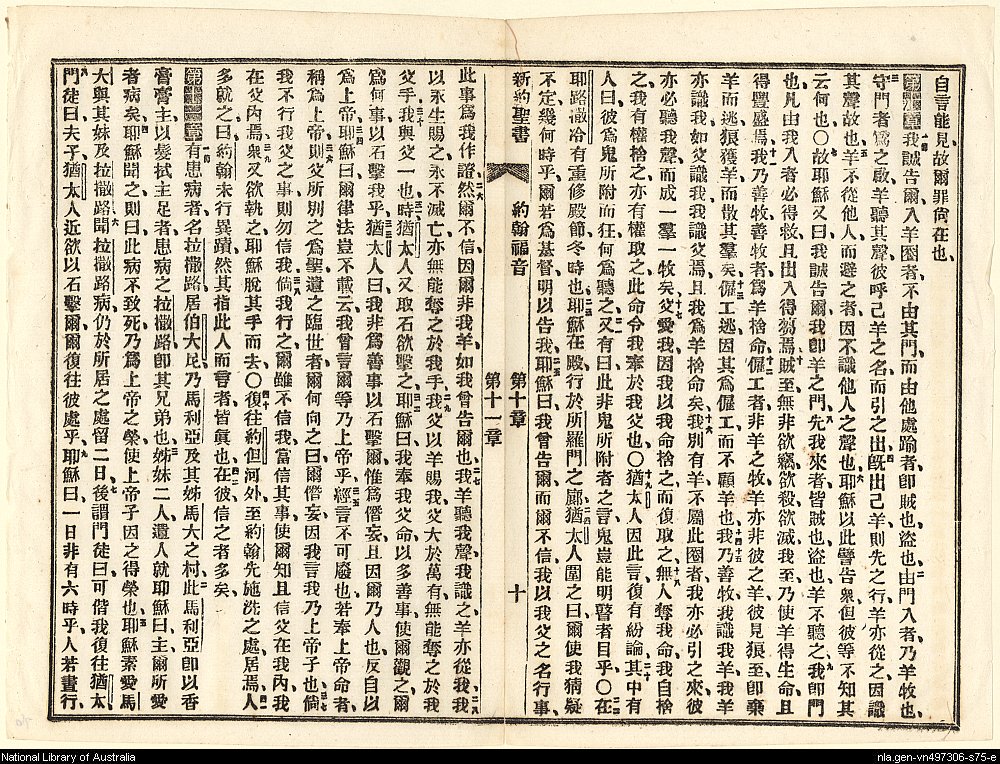 自言能見故爾罪尙在也
第十章我誠告爾入羊圈者不由其門而由他處踰者卽賊也盜也由門入者乃羊牧也
守門者爲之啟羊聽其聲彼呼己羊之名而引之出旣出己羊則先之行羊亦從之因識
其聲故也羊不從他人而避之者因不識他人之聲也耶穌以此譬告衆但彼等不知其
云何也〇故耶穌又曰我誠告爾我卽羊之門先我來者皆賊也盜也羊不聽之我卽門
也凡由我入者必得救且出入得芻焉賊至無非欲竊欲殺欲滅我至乃使羊得生命且
得豐盛焉我乃善牧善牧者爲羊捨命傭工者非羊之牧羊亦非彼之羊彼見狼至卽棄
羊而逃狼獲羊而散其羣矣傭工逃因其爲傭工而不顧羊也我乃善牧我識我羊我羊
亦識我如父識我我識父焉且我爲羊捨命矣我別有羊不屬此圈者我亦必引之來彼
亦必聽我聲而成一羣一牧矣父愛我因我以我命捨之而復取之無人奪我命我自捨
之我有權捨之亦有權取之此命令我奉於我父也〇猶太人因此言復有紛論其中有
人曰彼爲鬼所附而狂何爲聽之又有曰此非鬼所附者之言鬼豈能明瞽者目乎〇在
耶路撒冷有重修殿節冬時也耶穌在殿行於所羅門之廊猶太人圍之曰爾使我猜疑
不定幾何時乎爾若爲基督明以告我耶穌曰我曾告爾而爾不信我以我父之名行事
新約聖書 約翰福音 第十章 第十一章 十
此事爲我作證然爾不信因爾非我羊如我曾告爾也我羊聽我聲我識之羊亦從我我
以永生賜之永不滅亡亦無能奪之於我手我父以羊賜我父大於萬有無能奪之於我
父手我與父一也時猶太人又取石欲擊之耶穌曰我奉我父命以多善事使爾觀之爾
爲何事以石擊我乎猶太人曰我非爲善事以石擊爾惟爲僭妄且因爾乃人也反自以
爲上帝耶穌曰爾律法豈不載云我曾言爾等乃上帝乎經言不可廢也若奉上帝命者
稱爲上帝則父所別之爲聖遣之臨世者爾何向之曰爾僭妄因我言我乃上帝子也倘
我不行我父之事則勿信我倘我行之爾雖不信我當信其事使爾知且信父在我內我
在父內焉衆又欲執之耶穌脫其手而去〇復往約但河外至約翰先施洗之處居焉人
多就之曰約翰未行異蹟然其指此人而言者皆眞也在彼信之者多矣
第十一章有患病者名拉撒路居伯大尼乃馬利亞及其姊馬大之村此馬利亞卽以香
膏膏主以髮拭主足者患病之拉撒路卽其兄弟也姊妹二人遣人就耶穌曰主爾所愛
者病矣耶穌聞之則曰此病不致死乃爲上帝之榮使上帝子因之得榮也耶穌素愛馬
大與其妹及拉撒路聞拉撒路病仍於所居之處留二日後謂門徒曰可偕我復往猶太
門徒曰夫子猶太人近欲以石擊爾爾復往彼處乎耶穌曰一日非有六時乎人若晝行
National Library of Australia
nla.gen-vn497306-s75-e